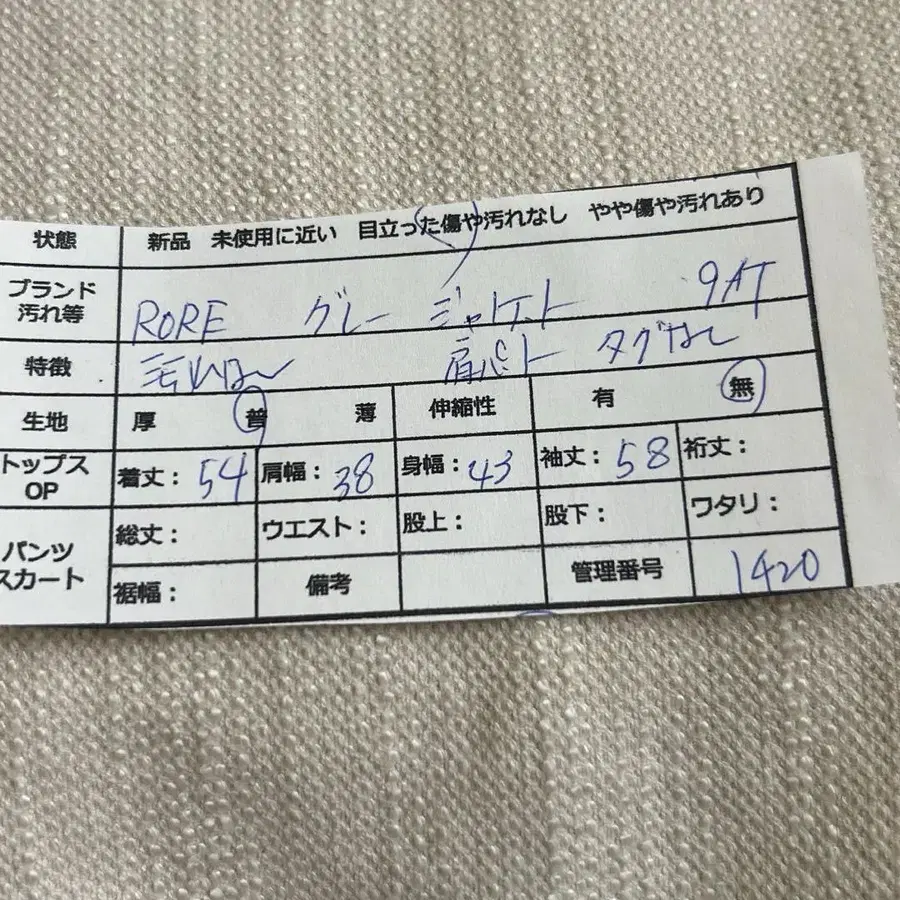 状態 新品 未使用に近い 目立った傷や汚れなし やや傷や汚れあり
ブランド 汚れ等 RORE グレー ジャケット 9AT
特徴 肩パット タグなし
生地 厚 普 薄 伸縮性 有 無
トップス OP 着丈： 54 肩幅： 38 身幅： 43 袖丈： 58 裄丈：
パンツ スカート 総丈： ウエスト： 股上： 股下： ワタリ：
裾幅： 備考 管理番号 1420